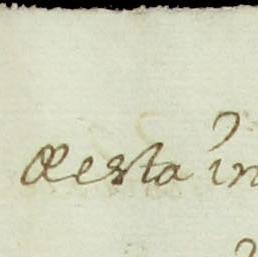 Resta in